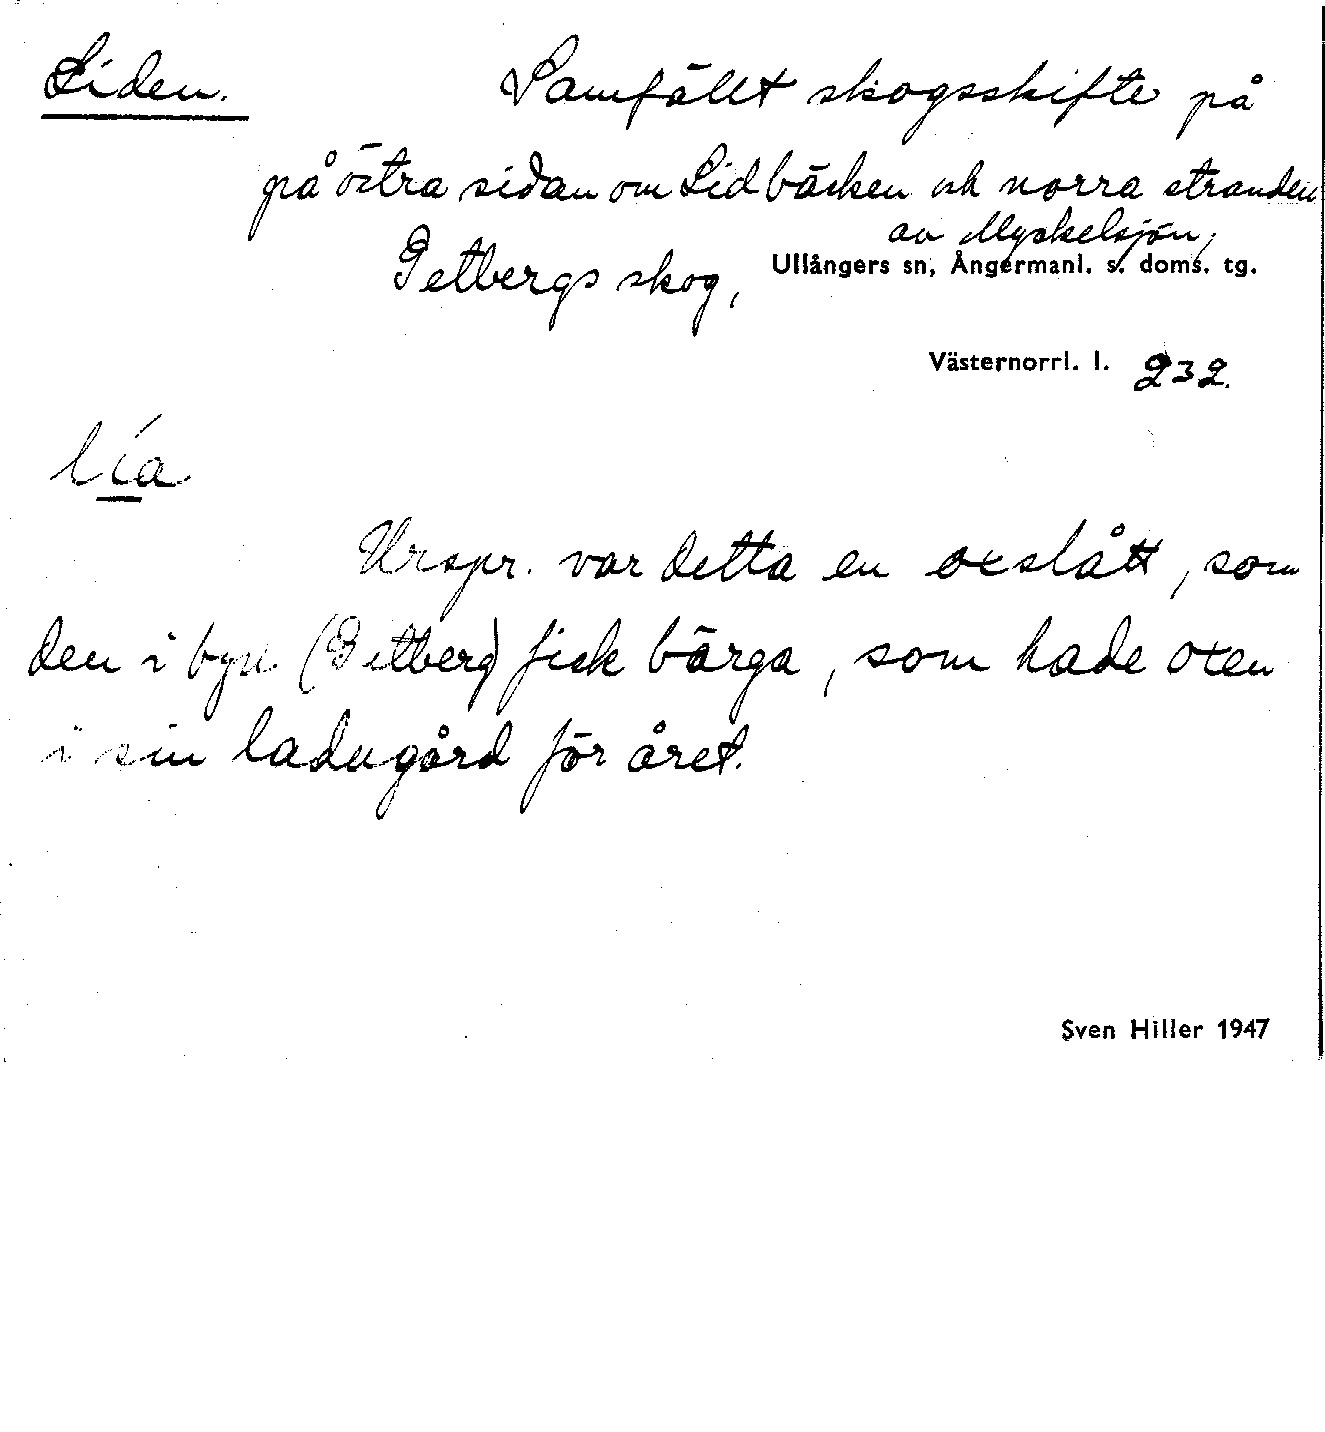 Liden. Samfällt skogsskifte på
på östra sidan om Lidbäcken och norra stranden
av Myckelsjön,
Getbergs skog, Ullångers sn, Ångermanl. s. doms. tg.
Västernorrl. l. 232.
lía
Urspr. var detta en oxslått, som
den i byn (Getberg) fick bärga, som hade oxen
i sin ladugård för året.
Sven Hiller 1947